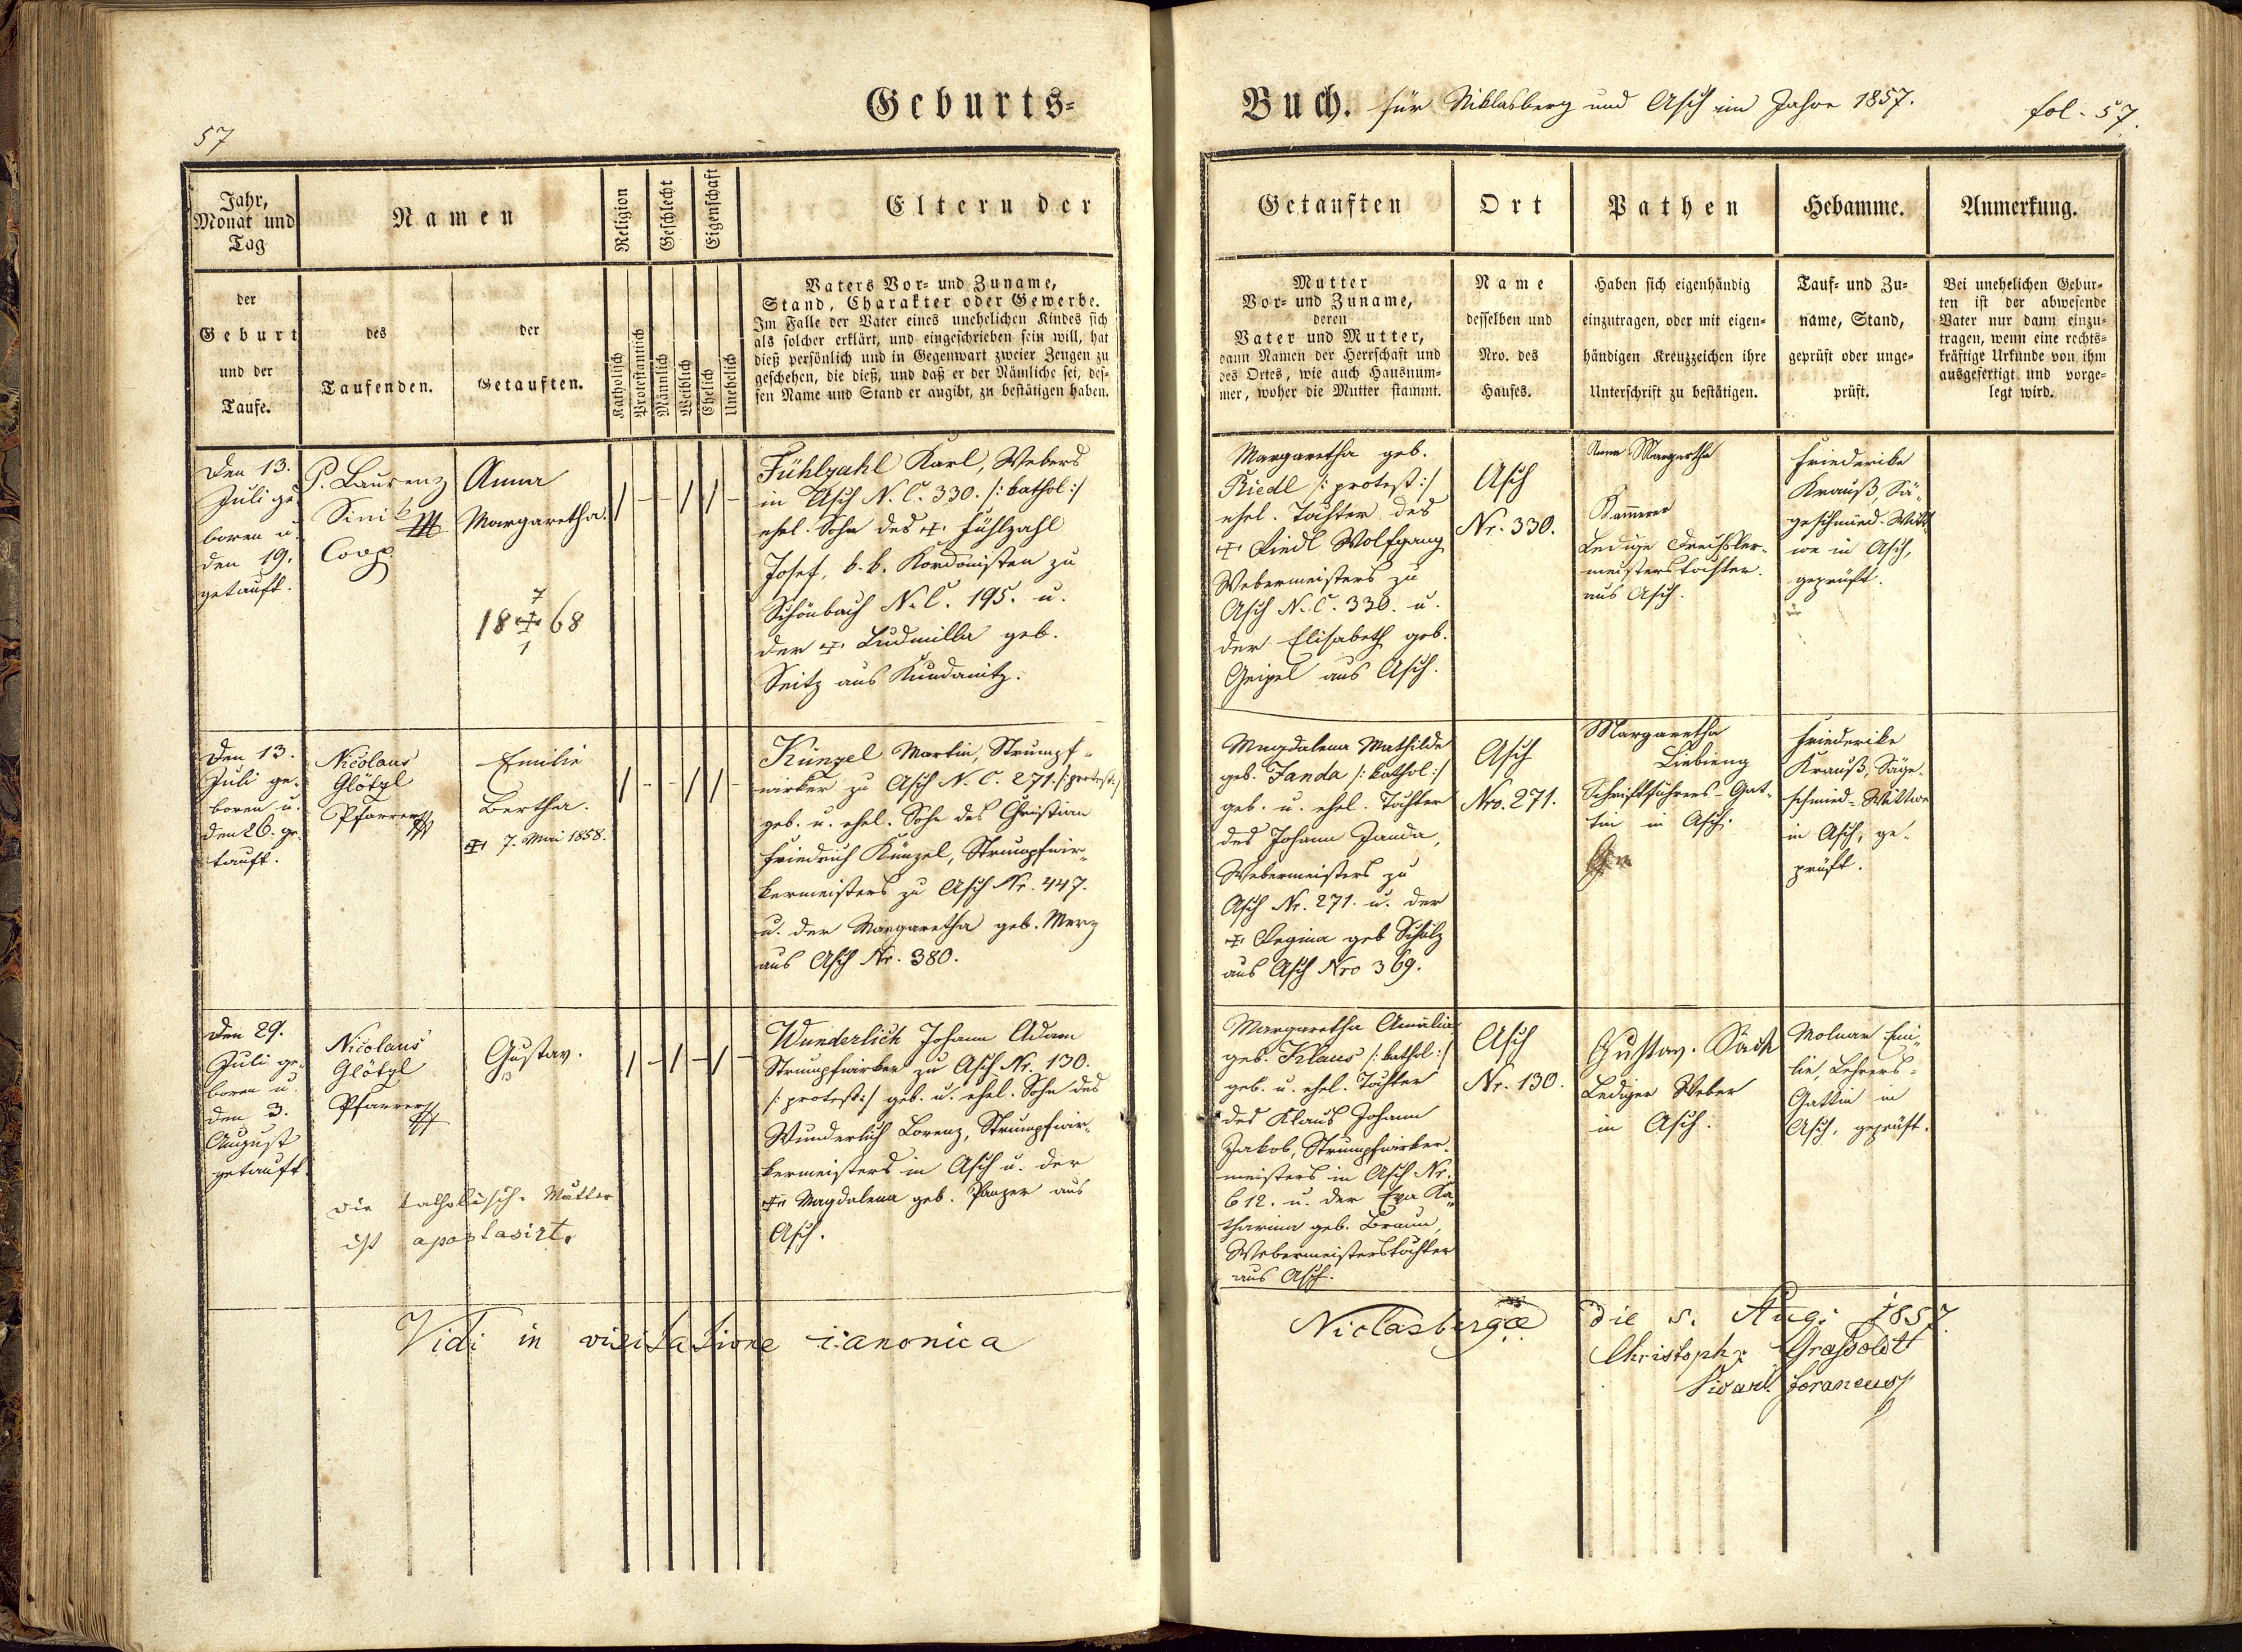 57
Geburts-
Jahr,
Monat und
Tag
der
Geburt
und der
Taufe.
Namen
des
Taufenden.
der
Getauften.
Religion
Katholisch
Protestantisch
Geschlecht
Männlich
Weiblich
Eigenschaft
Ehelich
Unehelich
Eltern der
Vaters Vor- und Zuname,
Stand, Charakter oder Gewerbe.
Im Falle der Vater eines unehelichen Kindes sich
als solcher erklärt, und eingeschrieben sein will, hat
dieß persönlich und in Gegenwart zweier Zeugen zu
geschehen, die dieß, und daß er der Nämliche sei, des-
sen Name und Stand er angibt, zu bestätigen haben.
Den 13.
Juli ge-
boren u.
den 19.
getauft.
P. Laurenz
Coop
Anna
Margaretha.
7
18 + 68
1
Fühlzahl Karl, Webers
in Asch N. C. 330. /: kathol :/
ehel. Sohn des + Fühlzahl
Josef, k. k. Kordonisten zu
Schönbach N. C. 195. u.
der + Ludmilla geb.
Seitz aus
Den 13.
Juli ge-
boren u.
den 26. ge-
tauft.
Nicolaus
Glötzl
Pfarrer
Emilie
Bertha.
+ 7. Mai 1858.
Künzel Martin, Strumpf-
wirker zu Asch N. C. 271. /: protest :/
geb. u. ehel. Sohn des Christian
Friedrich Künzel, Strumpfwir-
kermeisters zu Asch Nr. 447.
u. der Margaretha geb. Merz
aus Asch Nr. 380.
Den 29.
Juli ge-
boren u.
den 3.
August
getauft.
Nicolaus
Glötzl
Pfarrer
Gustav.
die katholisch. Mutter
ist apostasirt.
Wunderlich Johann Adam
Strumpfwirker zu Asch Nr. 130.
/: protest :/ geb. u. ehel. Sohn des
Wunderlich Lorenz, Strumpfwir-
kermeisters in Asch u. der
+ Magdalena geb. Panzer aus
Asch.
Vidi in visitatione canonica
Buch. für Niklasberg und Asch im Jahre 1857.
fol. 57.
Getauften
Mutter
Vor- und Zuname,
deren
Vater und Mutter,
dann Namen der Herrschaft und
des Ortes, wie auch Hausnum-
mer, woher die Mutter stammt.
Ort
Name
desselben und
Nro. des
Hauses.
Pathen
Haben sich eigenhändig
einzutragen, oder mit eigen-
händigen Kreuzzeichen ihre
Unterschrift zu bestätigen.
Hebamme.
Tauf- und Zu-
name, Stand,
geprüft oder unge-
prüft.
Anmerkung.
Bei unehelichen Gebur-
ten ist der abwesende
Vater nur dann einzu-
tragen, wenn eine rechts-
kräftige Urkunde von ihm
ausgefertigt und vorge-
legt wird.
Margaretha geb.
Riedl /: protest :/
ehel. Tochter des
+ Riedl Wolfgang
Webermeisters zu
Asch N. C. 330. u.
der Elisabeth geb.
Geipel aus Asch.
Asch
Nr. 330.
Anna Margartha
Kammerer
Ledige Drechsler-
meisterstochter
aus Asch.
Friederike
Krauß, Sä-
geschmied-Witt-
we in Asch,
geprüft.
Magdalena Mathilde
geb. Janda /: kathol :/
geb. u. ehel. Tochter
des Johann Janda,
Webermeisters zu
Asch Nr. 271. u. der
+ Regina geb Scholz
aus Asch Nro 369.
Asch
Nro. 271.
Margaretha
Schriftführers-Gat-
tin in Asch.
Friederike
Krauß, Säge-
schmied-Wittwe
in Asch, ge-
prüft.
Margaretha Amalia
geb. Klaus /: kathol :/
geb. u. ehel. Tochter
des Klaus Johann
Jakob, Strumpfwirker-
meisters in Asch Nr.
612. u. der Eva Ka-
tharina geb. Braun,
Webermeisterstochter
aus Asch.
Asch
Nr. 130.
Gustav.
Lediger Weber
in Asch.
Molnar Emi-
lie, Lehrers-
Gattin in
Asch, geprüft.
Niclasbergæ die 5. Aug: 1857
Christoph: Graßoldt
Vicari. foraneus